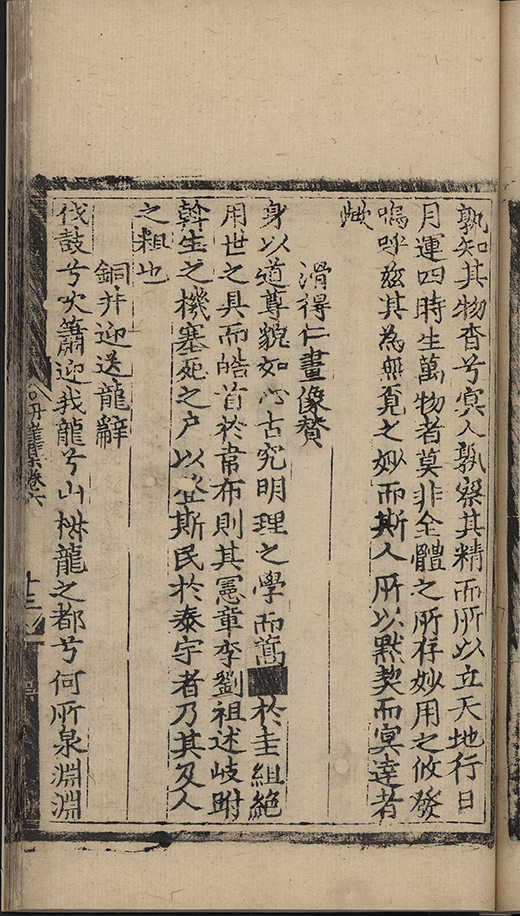 孰知其物杳兮冥人孰察其精而所以立天地行日
月運四時生萬物者莫非全體之所存妙用之攸發
嗚呼茲其為無竟之妙而斯人所以默契而冥達者
歟
滑得仁畫像贊
身以道尊貌如心古究明理之學而蒿於圭組絶
用世之具而皓首於韋布則其憲章李劉祖述岐跗
斡生之機塞死之户以登斯民於泰宇者乃其及人
之粗也
銅井迎送龍辭
伐鼓兮吹簫迎我龍兮山椒龍之都兮何所泉淵淵
卷六
十三